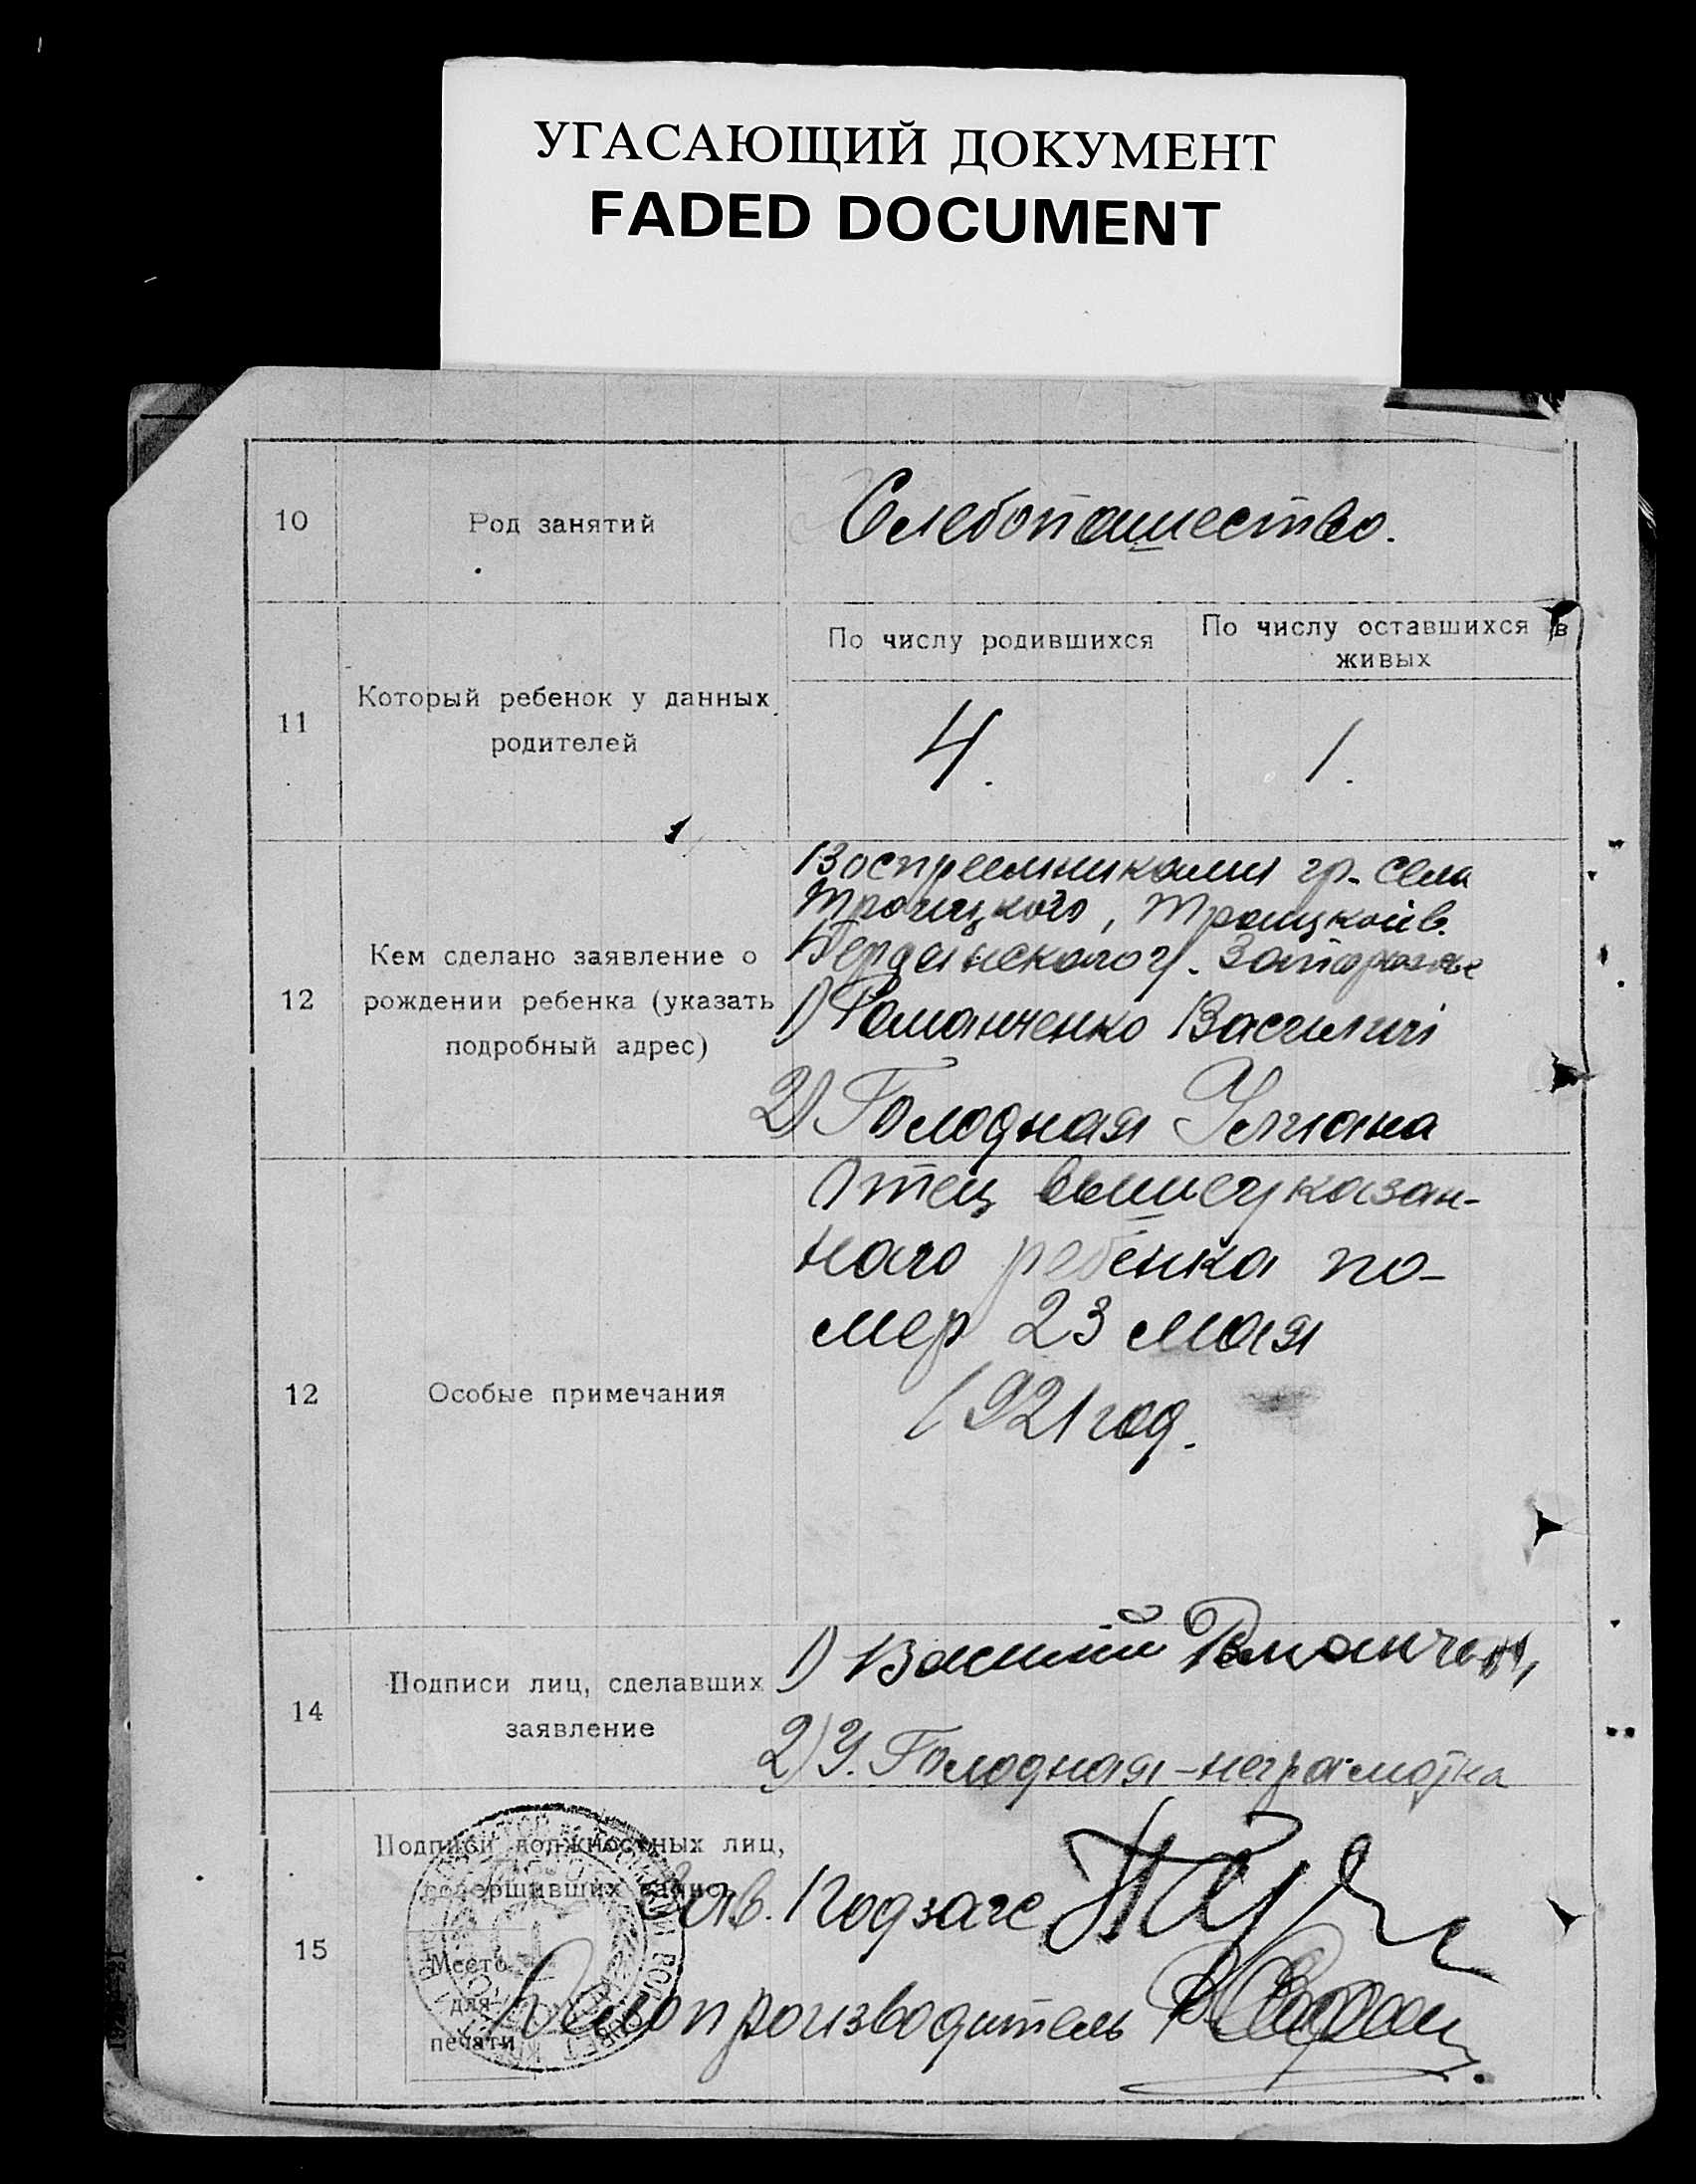 УГАСАЮЩИЙ ДОКУМЕНТ
FADED DOCUMENT
10
Род занятий
Слебопашество.
11
Который ребенок у данных
родителей
По числу родившихся
По числу оставшихся в
живых
4.
1.
12
Кем сделано заявление о
рождении ребенка (указать
подробный адрес)
Воспреемниками гр. села
Троицкого, Троицкой в.
Бердянского у. Запорож
1) Романченко Василий
2) Голодная Улиана
12
Особые примечания
Отец вышеуказан-
ного ребенка по-
мер 23 мая
1921 год.
14
Подписи лиц, сделавших
заявление
1) Василий Романчен
2) У. Голодная-неграмотна
15
Подписи должностных лиц,
совершивших запись
Зав. Подзаге
Место
для
печати
Делопроизводитель